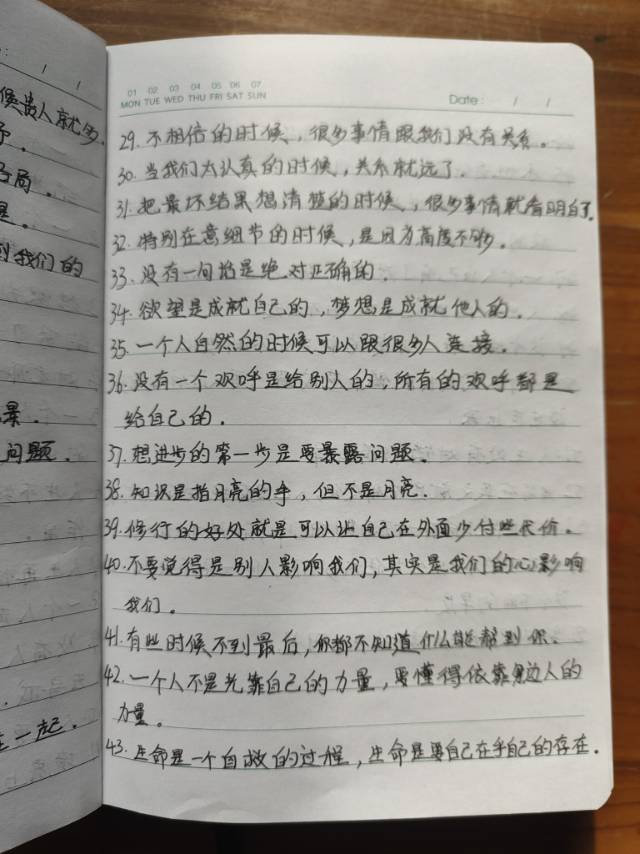 候贵人就多.
予.
局.
是.
到我们的
景.
问题.
在一起.
01 02 03 04 05 06 07
MON TUE WED THU FRI SAT SUN
Date: / /
29. 不相信的时候, 很多事情跟我们没有关系.
30. 当我们太认真的时候, 关系就远了.
31. 把最坏结果想清楚的时候, 很多事情就看明白了.
32. 特别在意细节的时候, 是因为高度不够.
33. 没有一句话是绝对正确的.
34. 欲望是成就自己的, 梦想是成就他人的.
35. 一个人自然的时候可以跟很多人连接.
36. 没有一个欢呼是给别人的, 所有的欢呼都是
给自己的.
37. 想进步的第一步是要暴露问题.
38. 知识是指月亮的手, 但不是月亮.
39. 修行的好处就是可以让自己在外面少付些代价.
40. 不要觉得是别人影响我们, 其实是我们的心影响
我们.
41. 有些时候不到最后, 你都不知道什么能帮到你.
42. 一个人不是光靠自己的力量, 要懂得依靠身边人的
力量.
43. 生命是一个自救的过程, 生命是要自己在乎自己的存在.